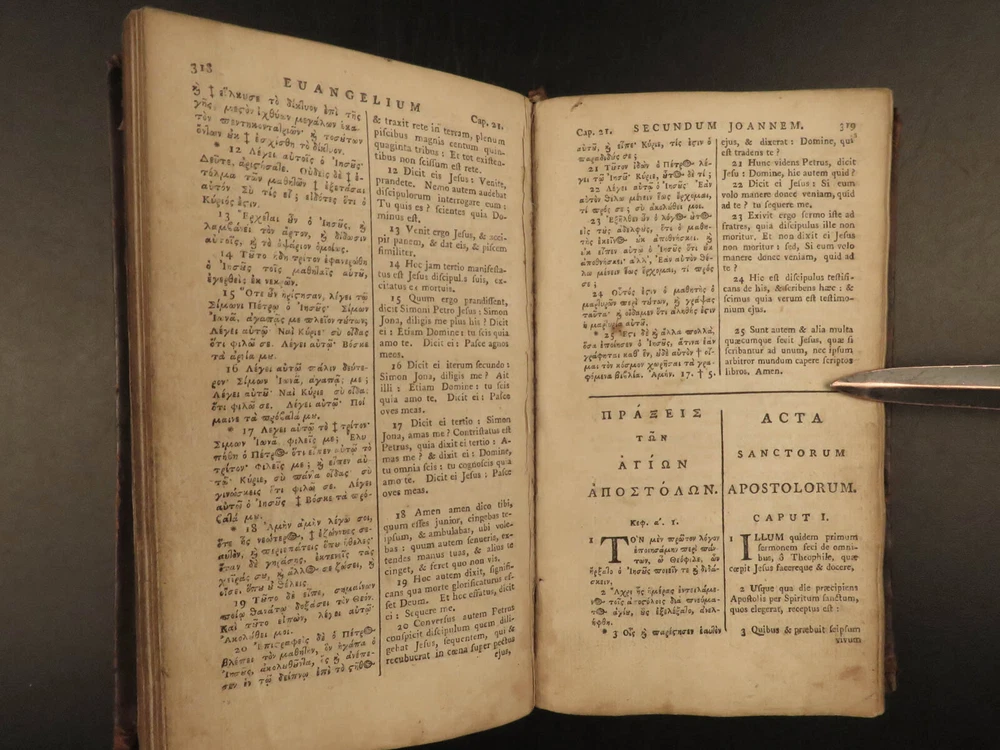 318
EUANGELIUM
Cap. 21.
ȣ̀ † εἵλκυσε τὸ δίκτυον ἐπὶ τῆς
γῆς, μεςὸν ἰχθύων μεγάλων ἑκα-
τὸν πεντηκοντατριῶν· ϗ τοσύτων
ὄντων ὐκ † ἐσχίσθη τὸ δίκτυον.
* 12 Λέγει αὐτοῖς ὁ Ἰησȣ͂ς·
Δεῦτε, ἀριςήσατε. Οὐδεὶς δὲ † ἐ-
τόλμα τῶν μαθητῶν † ἐξετάσαι
αὐτόν· Σὺ τίς εἶ; εἰδότες ὅτι ὁ
Κύριός ἐςιν.
13 Ἔρχεται ὖν ὁ Ἰησȣ͂ς, ϗ
λαμβάνει τὸν ἄρτον, ϗ δίδωσιν
αὐτοῖς, ϗ τὸ ὀψάριον ὁμοίως.
14 Τȣ͂το ἤδη τρίτον ἐφανερώθη
ὁ Ἰησȣ͂ς τοῖς μαθηταῖς αὑτȣ͂,
ἐγερθεὶς ἐκ νεκρῶν.
15 Ὅτε ȣ͂ν ἠρίςησαν, λέγει τῷ
Σίμωνι Πέτρῳ ὁ Ἰησȣ͂ς· Σίμων
Ἰωνᾶ, ἀγαπᾷς με πλεῖον τȣ́των;
Λέγει αὐτῷ· Ναὶ Κύριε· σὺ οἶδας
ὅτι φιλῶ σε. Λέγει αὐτῷ· Βόσκε
τὰ ἀρνία μȣ.
16 Λέγει αὐτῷ πάλιν δεύτε-
ρον· Σίμων Ἰωνᾶ, ἀγαπᾷς με;
Λέγει αὐτῷ· Ναὶ Κύριε· σὺ οἶδας
ὅτι φιλῶ σε. Λέγει αὐτῷ· Ποί-
μαινε τὰ πρόβατά μȣ.
* 17 Λέγει αὐτῷ τὸ † τρίτον·
Σίμων Ἰωνᾶ, φιλεῖς με; Ἐλυ-
πήθη ὁ Πέτρος ὅτι εἶπεν αὐτῷ τὸ
τρίτον· φιλεῖς με; ϗ εἶπεν αὐ-
τῷ· Κύριε, σὺ πάντα οἶδας· σὺ
γινώσκεις ὅτι φιλῶ σε. Λέγει
αὐτῷ ὁ Ἰησȣ͂ς· † Βόσκε τὰ πρό-
βατά μȣ.
* 18 Ἀμὴν ἀμὴν λέγω σοι,
ὅτε ἦς νεώτερος, † ἐζώννυες σε-
αυτὸν, ϗ περιεπάτεις ὅπȣ ἤθελες·
ὅταν δὲ γηράσῃς, ἐκτενεῖς τὰς
χεῖράς σȣ, ϗ ἄλλος σε ζώσει, ϗ
οἴσει ὅπȣ ȣ̓ θέλεις.
19 Τȣ͂το δὲ εἶπε, σημαίνων
ποίῳ θανάτῳ δοξάσει τὸν Θεόν.
Καὶ τȣ͂το εἰπὼν, λέγει αὐτῷ·
Ἀκολȣ́θει μοι.
20 Ἐπιςραφεὶς δὲ ὁ Πέτρος
βλέπει τὸν μαθητὴν, ὃν ἠγάπα ὁ
Ἰησȣ͂ς, ἀκολȣθȣ͂ντα, ὃς ϗ ἀνέπε-
σεν ἐν τῷ δείπνῳ ἐπὶ τὸ ςῆθος
& traxit rete in terram, plenum
piscibus magnis centum quin-
quaginta tribus: Et tot existen-
tibus non scissum est rete.
12 Dicit eis Jesus: Venite,
prandete. Nemo autem audebat
discipulorum interrogare eum:
Tu quis es? scientes quia Do-
minus est.
13 Venit ergo Jesus, & acci-
pit panem, & dat eis, & piscem
similiter.
14 Hoc jam tertio manifesta-
tus est Jesus discipulis suis, ex-
citatus e mortuis.
15 Quum ergo prandissent,
dicit Simoni Petro Jesus: Simon
Jona, diligis me plus his? Dicit
ei: Etiam Domine: tu scis quia
amo te. Dicit ei: Pasce agnos
meos.
16 Dicit ei iterum secundo:
Simon Jona, diligis me? Ait
illi: Etiam Domine: tu scis
quia amo te. Dicit ei: Pasce
oves meas.
17 Dicit ei tertio: Simon
Jona, amas me? Contristatus est
Petrus, quia dixit ei tertio: A-
mas me? & dixit ei: Domine,
tu omnia scis: tu cognoscis quia
amo te. Dicit ei Jesus: Pasce
oves meas.
18 Amen amen dico tibi,
quum esses junior, cingebas te-
ipsum, & ambulabas, ubi vole-
bas: quum autem senueris, ex-
tendes manus tuas, & alius te
cinget, & feret quo non vis.
19 Hoc autem dixit, signifi-
cans qua morte glorificaturus es-
set Deum. Et hoc effatus, dicit
ei: Sequere me.
20 Conversus autem Petrus
conspicit discipulum quem dili-
gebat Jesus, sequentem, qui &
recubuerat in cœna super pectus
ejus,
Cap. 21.
SECUNDUM JOANNEM.
319
αὐτȣ͂, ϗ εἶπε· Κύριε, τίς ἐςιν ὁ
παραδιδȣ́ς σε;
21 Τȣ͂τον ἰδὼν ὁ Πέτρος λέ-
γει τῷ Ἰησȣ͂· Κύριε, ȣ͂τος δὲ τί;
22 Λέγει αὐτῷ ὁ Ἰησȣ͂ς· Ἐὰν
αὐτὸν θέλω μένειν ἕως ἔρχομαι,
τί πρός σε; σὺ ἀκολȣ́θει μοι.
23 Ἐξῆλθεν ȣ͂ν ὁ λόγος ȣ͂τος
εἰς τȣ̀ς ἀδελφȣ̀ς, ὅτι ὁ μαθη-
τὴς ἐκεῖνος ȣ̓κ ἀποθνήσκει· ϗ
ȣ̓κ εἶπεν αὐτῷ ὁ Ἰησȣ͂ς ὅτι ȣ̓κ
ἀποθνήσκει· ἀλλʼ, Ἐὰν αὐτὸν θέ-
λω μένειν ἕως ἔρχομαι, τί πρός
σε;
24 Οὗτός ἐςιν ὁ μαθητὴς ὁ
μαρτυρῶν περὶ τȣ́των, ϗ γράψας
ταῦτα· ϗ οἴδαμεν ὅτι ἀληθής ἐςιν
ἡ μαρτυρία αὐτȣ͂.
* 25 Ἔςι δὲ ϗ ἄλλα πολλὰ,
ὅσα ἐποίησεν ὁ Ἰησȣ͂ς, ἅτινα ἐὰν
γράφηται καθʼ ἓν, ȣ̓δὲ αὐτὸν † οἶ-
μαι τὸν κόσμον χωρῆσαι τὰ γρα-
φόμενα βιβλία. Ἀμήν. 17. † 5.
ejus, & dixerat: Domine, qui
est tradens te?
21 Hunc videns Petrus, dicit
Jesu: Domine, hic autem quid?
22 Dicit ei Jesus: Si eum
volo manere donec veniam, quid
ad te? tu sequere me.
23 Exivit ergo sermo iste ad
fratres, quia discipulus ille non
moritur. Et non dixit ei Jesus
non moritur: sed, Si eum volo
manere donec veniam, quid ad
te?
24 Hic est discipulus testifi-
cans de his, & scribens hæc: &
scimus quia verum est testimo-
nium ejus.
25 Sunt autem & alia multa
quæcumque fecit Jesus, quæ si
scribantur ad unum, nec ipsum
arbitror mundum capere scriptos
libros. Amen.
ΠΡΑΞΕΙΣ
ΤΩ͂Ν
ἉΓΙΩΝ
ἈΠΟΣΤΟΛΩΝ.
Κεφ. αʹ. 1.
1 ΤΟΝ μὲν πρῶτον λόγον
ἐποιησάμην περὶ πάν-
των, ὦ Θεόφιλε, ὧν
ἤρξατο ὁ Ἰησȣ͂ς ποιεῖν τε ϗ διδά-
σκειν,
2 Ἄχρι ἧς ἡμέρας ἐντειλάμε-
νος τοῖς ἀποςόλοις διὰ πνεύμα-
τος ἁγίȣ, ȣ̓̀ς ἐξελέξατο, ἀνελ-
ήφθη.
* 3 Οἷς ϗ παρέςησεν ἑαυτὸν
ACTA
SANCTORUM
APOSTOLORUM.
CAPUT I.
1 ILLUM quidem primum
sermonem feci de omni-
bus, ô Theophile, quæ
cœpit Jesus facereque & docere,
2 Usque qua die præcipiens
Apostolis per Spiritum sanctum,
quos elegerat, receptus est:
3 Quibus & præbuit seipsum
vivum